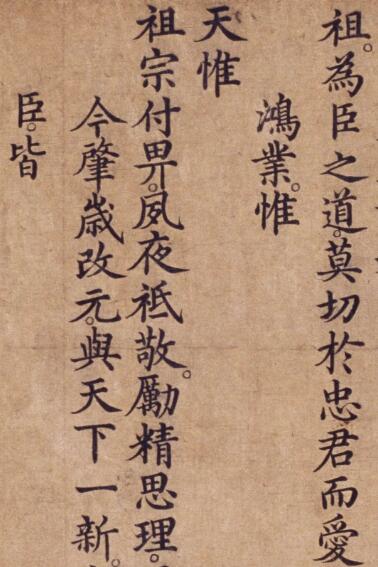 祖。為臣之道。莫切於忠君而愛
鴻業。惟
天惟
祖宗付畀。夙夜祗敬。勵精思理。
今肇歲改元。與天下一新。
臣。皆